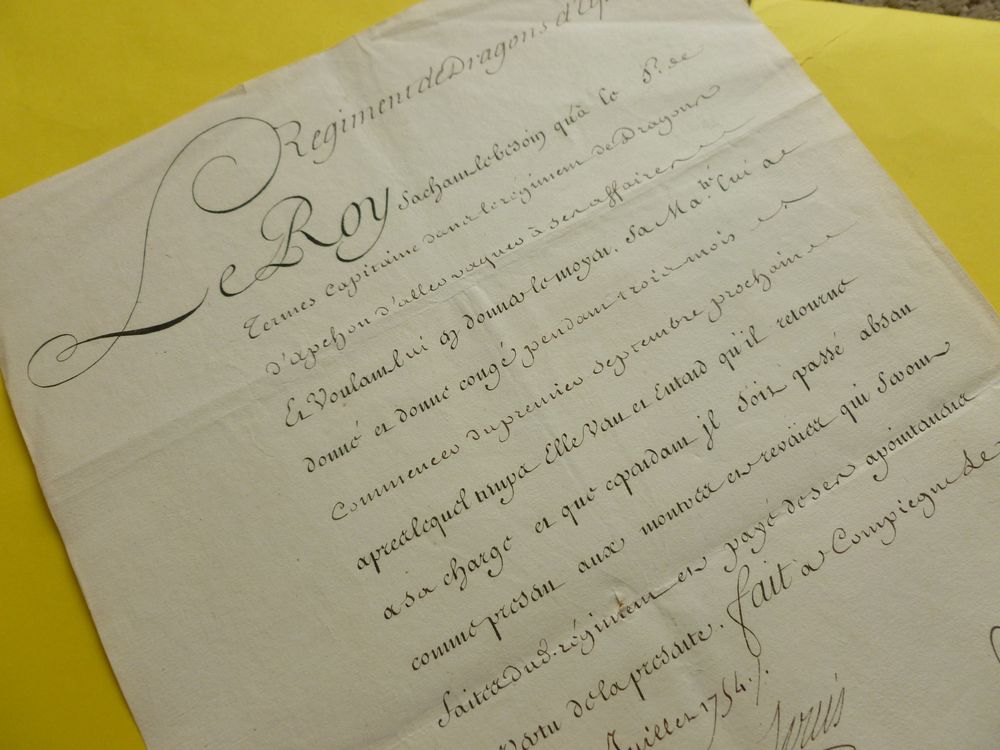 Regiment de Dragons d'Ap
Le Roy sachant le besoin qu'à le Sr. de
Termes Capitaine dans le régiment de Dragons
d'apchon d'aller vaquer à ses affaires
Et Voulant lui en donner le moyen. Sa Ma.té lui a
donné et donne congé pendant trois mois
Commencer du premier septembre prochain
apres lequel temps Elle Veut et Entend qu'il retourne
a sa charge et que cependant jl soit passé absent
comme present aux montres et revües qui seront
faites dud. régiment et payé de ses apointemens
Vertu de la presente. fait a Compiegne le
Juillet 1754./.
Louis